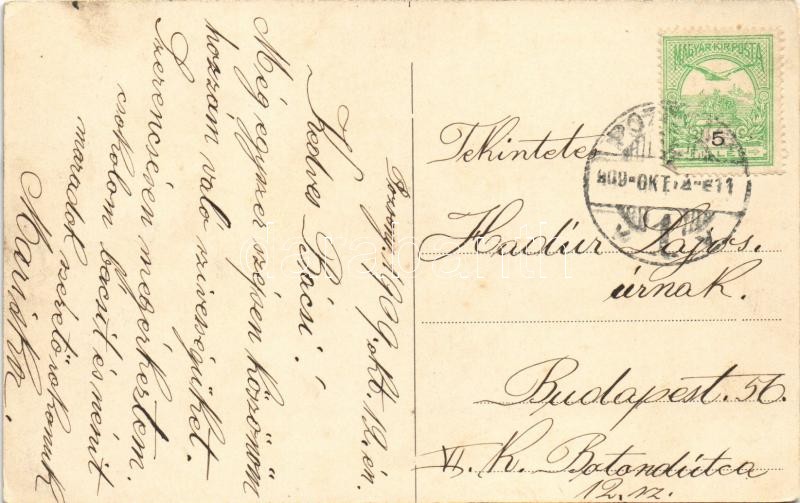 Pozsony, 1909. okt. 12. én.
Kedves Bácsi!
Még egyszer szépen köszönöm
hozzám való szivességüket.
Szerencsésen megérkeztem.
csókolom bácsit és nénit
maradok szerető rokonuk
MAGYAR KIR. POSTA
5
POZ
909-OKT
Tekintetes
Hadúr Lajos.
úrnak.
Budapest. 56.
VI. K. Botondútca
12. sz.
darabanth